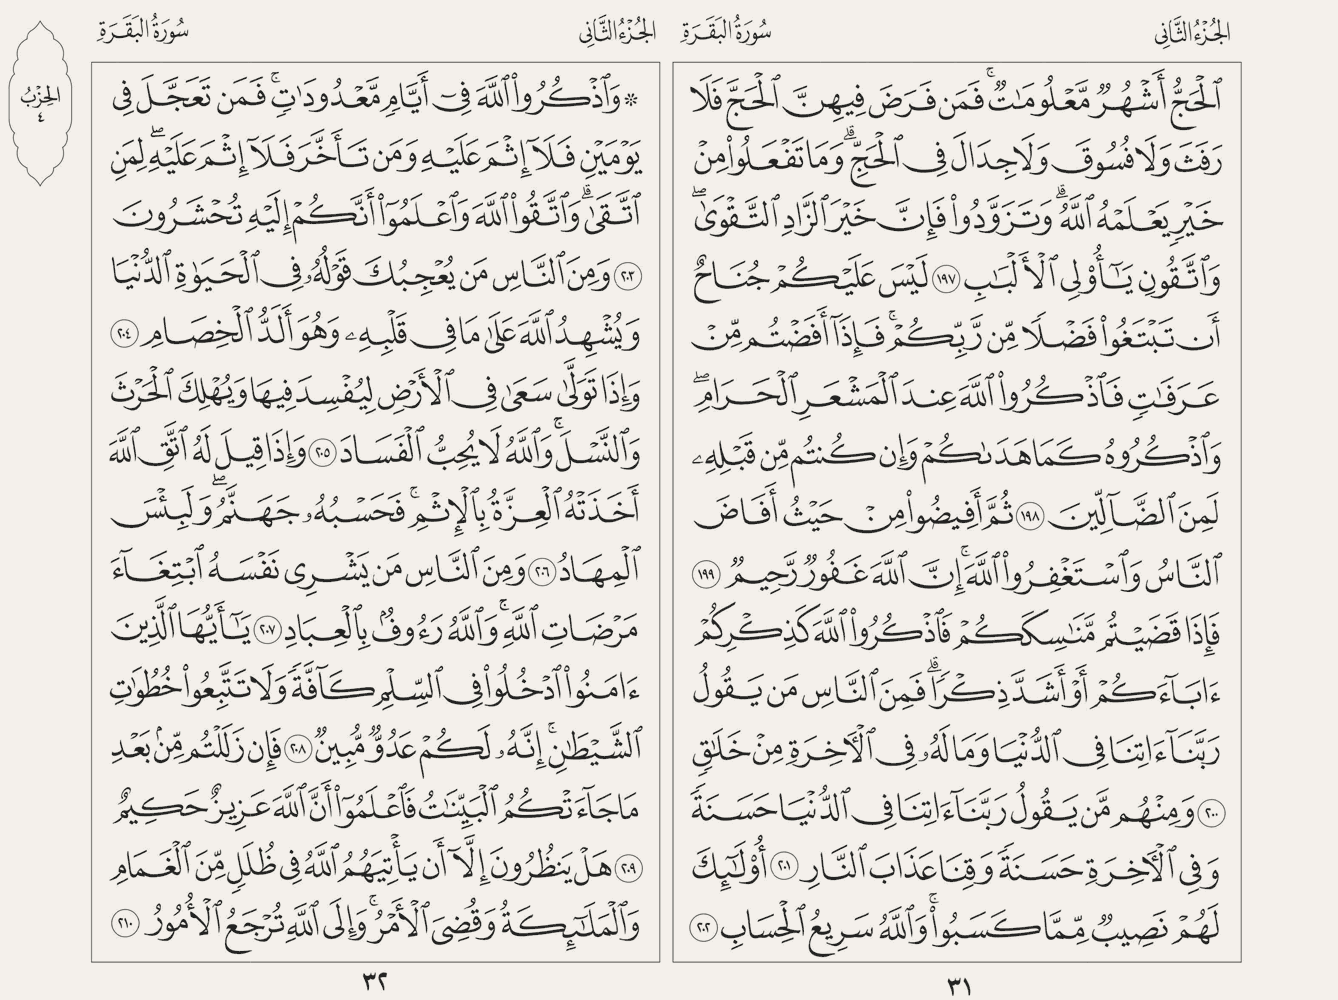 الجُزْءُ الثَّانِي
سُورَةُ البَقَرَةِ
ٱلْحَجُّ أَشْهُرٌ مَّعْلُومَٰتٌ ۚ فَمَن فَرَضَ فِيهِنَّ ٱلْحَجَّ فَلَا
رَفَثَ وَلَا فُسُوقَ وَلَا جِدَالَ فِى ٱلْحَجِّ ۗ وَمَا تَفْعَلُوا۟ مِنْ
خَيْرٍ يَعْلَمْهُ ٱللَّهُ ۗ وَتَزَوَّدُوا۟ فَإِنَّ خَيْرَ ٱلزَّادِ ٱلتَّقْوَىٰ ۖ
وَٱتَّقُونِ يَٰٓأُو۟لِى ٱلْأَلْبَٰبِ ١٩٧ لَيْسَ عَلَيْكُمْ جُنَاحٌ
أَن تَبْتَغُوا۟ فَضْلًا مِّن رَّبِّكُمْ ۚ فَإِذَآ أَفَضْتُم مِّنْ
عَرَفَٰتٍ فَٱذْكُرُوا۟ ٱللَّهَ عِندَ ٱلْمَشْعَرِ ٱلْحَرَامِ ۖ
وَٱذْكُرُوهُ كَمَا هَدَىٰكُمْ وَإِن كُنتُم مِّن قَبْلِهِۦ
لَمِنَ ٱلضَّآلِّينَ ١٩٨ ثُمَّ أَفِيضُوا۟ مِنْ حَيْثُ أَفَاضَ
ٱلنَّاسُ وَٱسْتَغْفِرُوا۟ ٱللَّهَ ۚ إِنَّ ٱللَّهَ غَفُورٌ رَّحِيمٌ ١٩٩
فَإِذَا قَضَيْتُم مَّنَٰسِكَكُمْ فَٱذْكُرُوا۟ ٱللَّهَ كَذِكْرِكُمْ
ءَابَآءَكُمْ أَوْ أَشَدَّ ذِكْرًا ۗ فَمِنَ ٱلنَّاسِ مَن يَقُولُ
رَبَّنَآ ءَاتِنَا فِى ٱلدُّنْيَا وَمَا لَهُۥ فِى ٱلْءَاخِرَةِ مِنْ خَلَٰقٍ
٢٠٠ وَمِنْهُم مَّن يَقُولُ رَبَّنَآ ءَاتِنَا فِى ٱلدُّنْيَا حَسَنَةً
وَفِى ٱلْءَاخِرَةِ حَسَنَةً وَقِنَا عَذَابَ ٱلنَّارِ ٢٠١ أُو۟لَٰٓئِكَ
لَهُمْ نَصِيبٌ مِّمَّا كَسَبُوا۟ ۚ وَٱللَّهُ سَرِيعُ ٱلْحِسَابِ ٢٠٢
٣١
الجُزْءُ الثَّانِي
سُورَةُ البَقَرَةِ
۞ وَٱذْكُرُوا۟ ٱللَّهَ فِىٓ أَيَّامٍ مَّعْدُودَٰتٍ ۚ فَمَن تَعَجَّلَ فِى
يَوْمَيْنِ فَلَآ إِثْمَ عَلَيْهِ وَمَن تَأَخَّرَ فَلَآ إِثْمَ عَلَيْهِ ۖ لِمَنِ
ٱتَّقَىٰ ۗ وَٱتَّقُوا۟ ٱللَّهَ وَٱعْلَمُوٓا۟ أَنَّكُمْ إِلَيْهِ تُحْشَرُونَ
٢٠٣ وَمِنَ ٱلنَّاسِ مَن يُعْجِبُكَ قَوْلُهُۥ فِى ٱلْحَيَوٰةِ ٱلدُّنْيَا
وَيُشْهِدُ ٱللَّهَ عَلَىٰ مَا فِى قَلْبِهِۦ وَهُوَ أَلَدُّ ٱلْخِصَامِ ٢٠٤
وَإِذَا تَوَلَّىٰ سَعَىٰ فِى ٱلْأَرْضِ لِيُفْسِدَ فِيهَا وَيُهْلِكَ ٱلْحَرْثَ
وَٱلنَّسْلَ ۚ وَٱللَّهُ لَا يُحِبُّ ٱلْفَسَادَ ٢٠٥ وَإِذَا قِيلَ لَهُ ٱتَّقِ ٱللَّهَ
أَخَذَتْهُ ٱلْعِزَّةُ بِٱلْإِثْمِ ۚ فَحَسْبُهُۥ جَهَنَّمُ ۖ وَلَبِئْسَ
ٱلْمِهَادُ ٢٠٦ وَمِنَ ٱلنَّاسِ مَن يَشْرِى نَفْسَهُ ٱبْتِغَآءَ
مَرْضَاتِ ٱللَّهِ ۚ وَٱللَّهُ رَءُوفٌۢ بِٱلْعِبَادِ ٢٠٧ يَٰٓأَيُّهَا ٱلَّذِينَ
ءَامَنُوا۟ ٱدْخُلُوا۟ فِى ٱلسِّلْمِ كَآفَّةً وَلَا تَتَّبِعُوا۟ خُطُوَٰتِ
ٱلشَّيْطَٰنِ ۚ إِنَّهُۥ لَكُمْ عَدُوٌّ مُّبِينٌ ٢٠٨ فَإِن زَلَلْتُم مِّنۢ بَعْدِ
مَا جَآءَتْكُمُ ٱلْبَيِّنَٰتُ فَٱعْلَمُوٓا۟ أَنَّ ٱللَّهَ عَزِيزٌ حَكِيمٌ
٢٠٩ هَلْ يَنظُرُونَ إِلَّآ أَن يَأْتِيَهُمُ ٱللَّهُ فِى ظُلَلٍ مِّنَ ٱلْغَمَامِ
وَٱلْمَلَٰٓئِكَةُ وَقُضِىَ ٱلْأَمْرُ ۚ وَإِلَى ٱللَّهِ تُرْجَعُ ٱلْأُمُورُ ٢١٠
٣٢
الحِزْبُ
٤